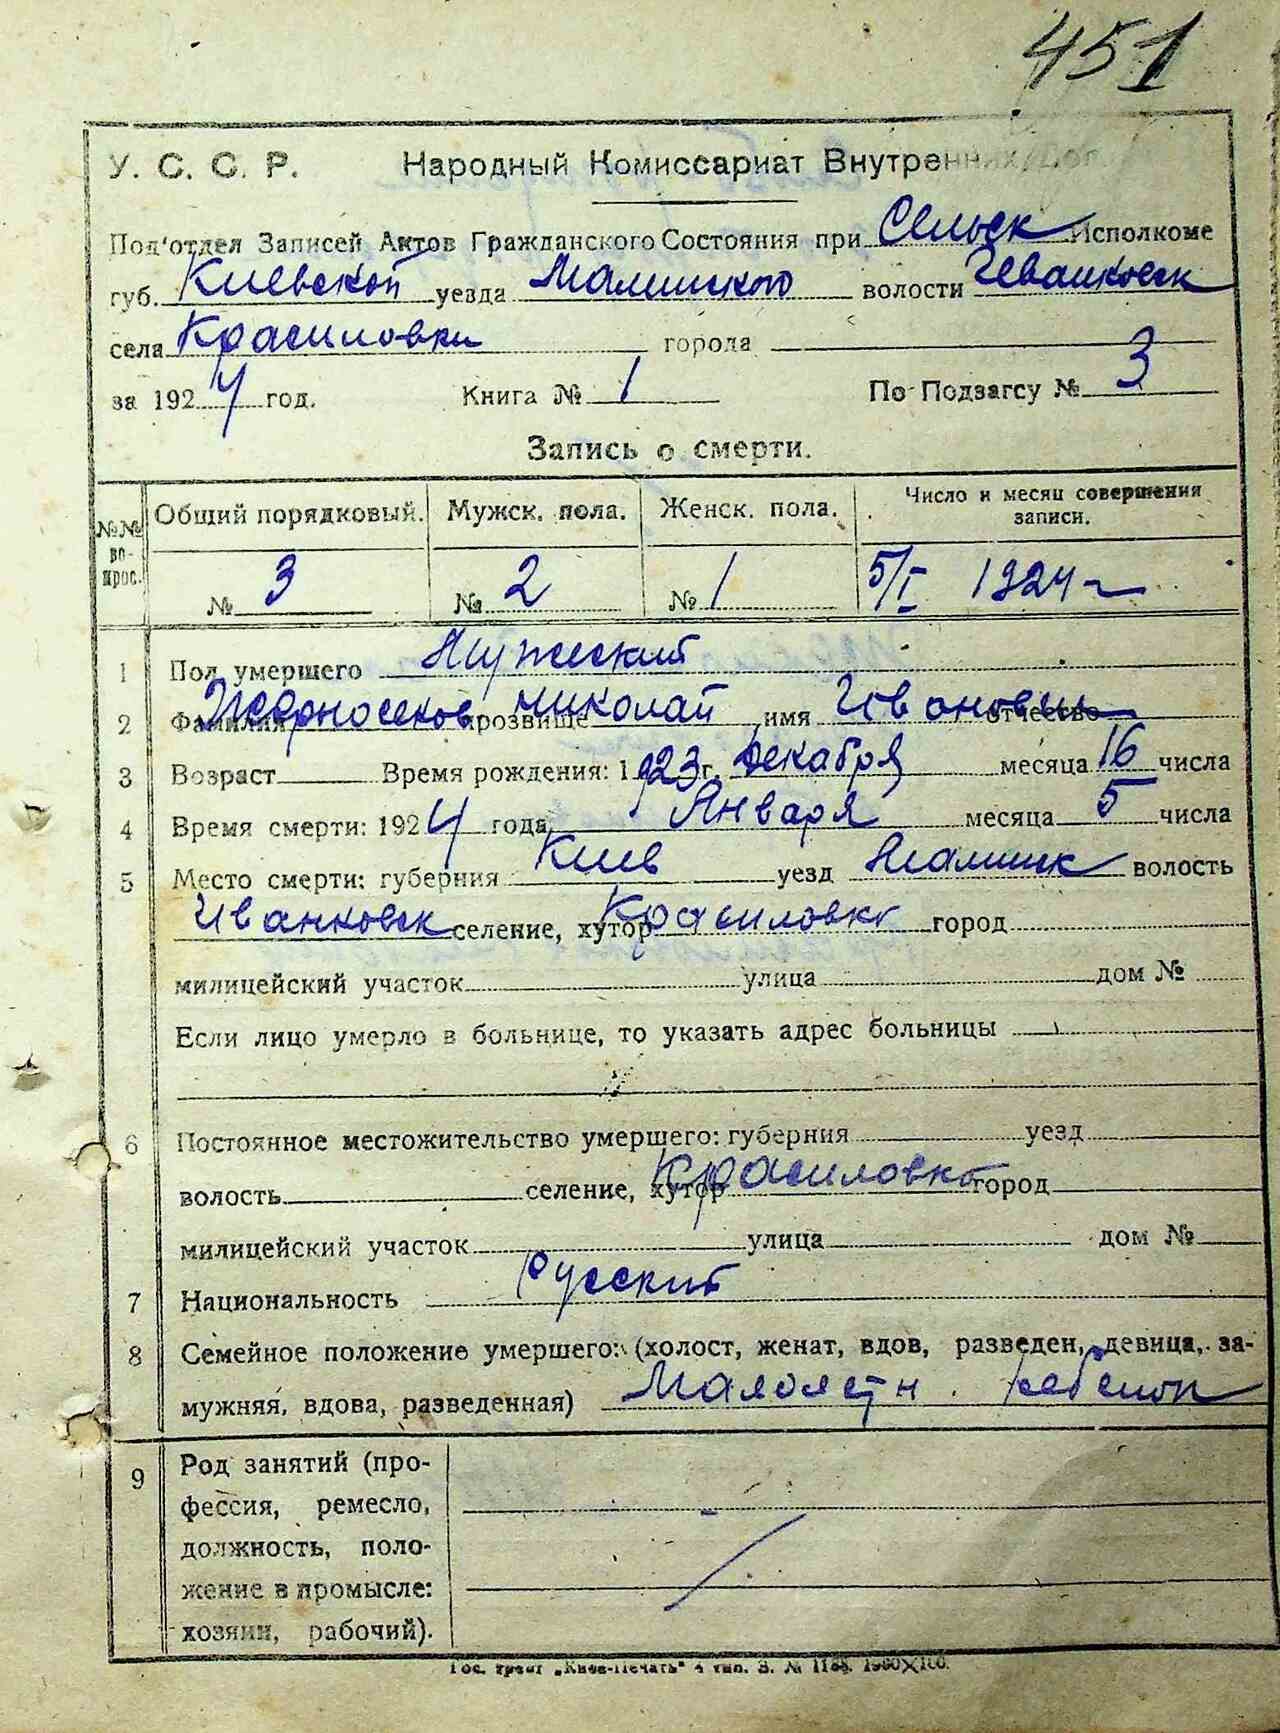 451
У. С. С. Р. Народный Комиссариат Внутренних Дел.
Под'отдел Записей Актов Гражданского Состояния при Сельск Исполкоме
губ. Киевской уезда Малинского волости Иванковск
села Красиловки города
за 1924 год. Книга № 1 По Подзагсу № 3
Запись о смерти.
№№ вопрос. Общий порядковый. Мужск. пола. Женск. пола. Число и месяц совершения записи.
№ 3 № 2 № 1 5/I 1924 г
1 Пол умершего Мужеский
2 Фамилия Жерносеков прозвище Николай имя Иванович отчество
3 Возраст Время рождения: 1923 г. Декабря месяца 16 числа
4 Время смерти: 1924 года, Января месяца 5 числа
5 Место смерти: губерния Киев уезд Малинск волость
Иванковск селение, хутор Красиловка город
милицейский участок улица дом №
Если лицо умерло в больнице, то указать адрес больницы
6 Постоянное местожительство умершего: губерния уезд
волость селение, хутор Красиловка город
милицейский участок улица дом №
7 Национальность Русский
8 Семейное положение умершего: (холост, женат, вдов, разведен, девица, за-
мужняя, вдова, разведенная) Малолетн. ребенок
9 Род занятий (про-
фессия, ремесло,
должность, поло-
жение в промысле:
хозяин, рабочий).
Гос. трест „Киев-Печать" 4 тип. З. №